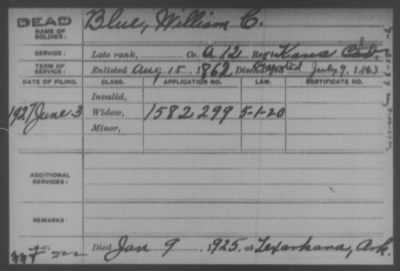 DEAD
NAME OF SOLDIER:
Blue, William C.
SERVICE:
Late rank, Co. A 12 Reg't Kans
TERM OF SERVICE:
Enlisted Aug 15, 1862 Discharged July 9, 1863
DATE OF FILING. CLASS. APPLICATION NO. LAW. CERTIFICATE NO.
Invalid,
1927 June 3 Widow, 1582 299 5-1-20
Minor,
ADDITIONAL SERVICES:
REMARKS:
Died Jan 9, 1925, at Texarkana, Ark.